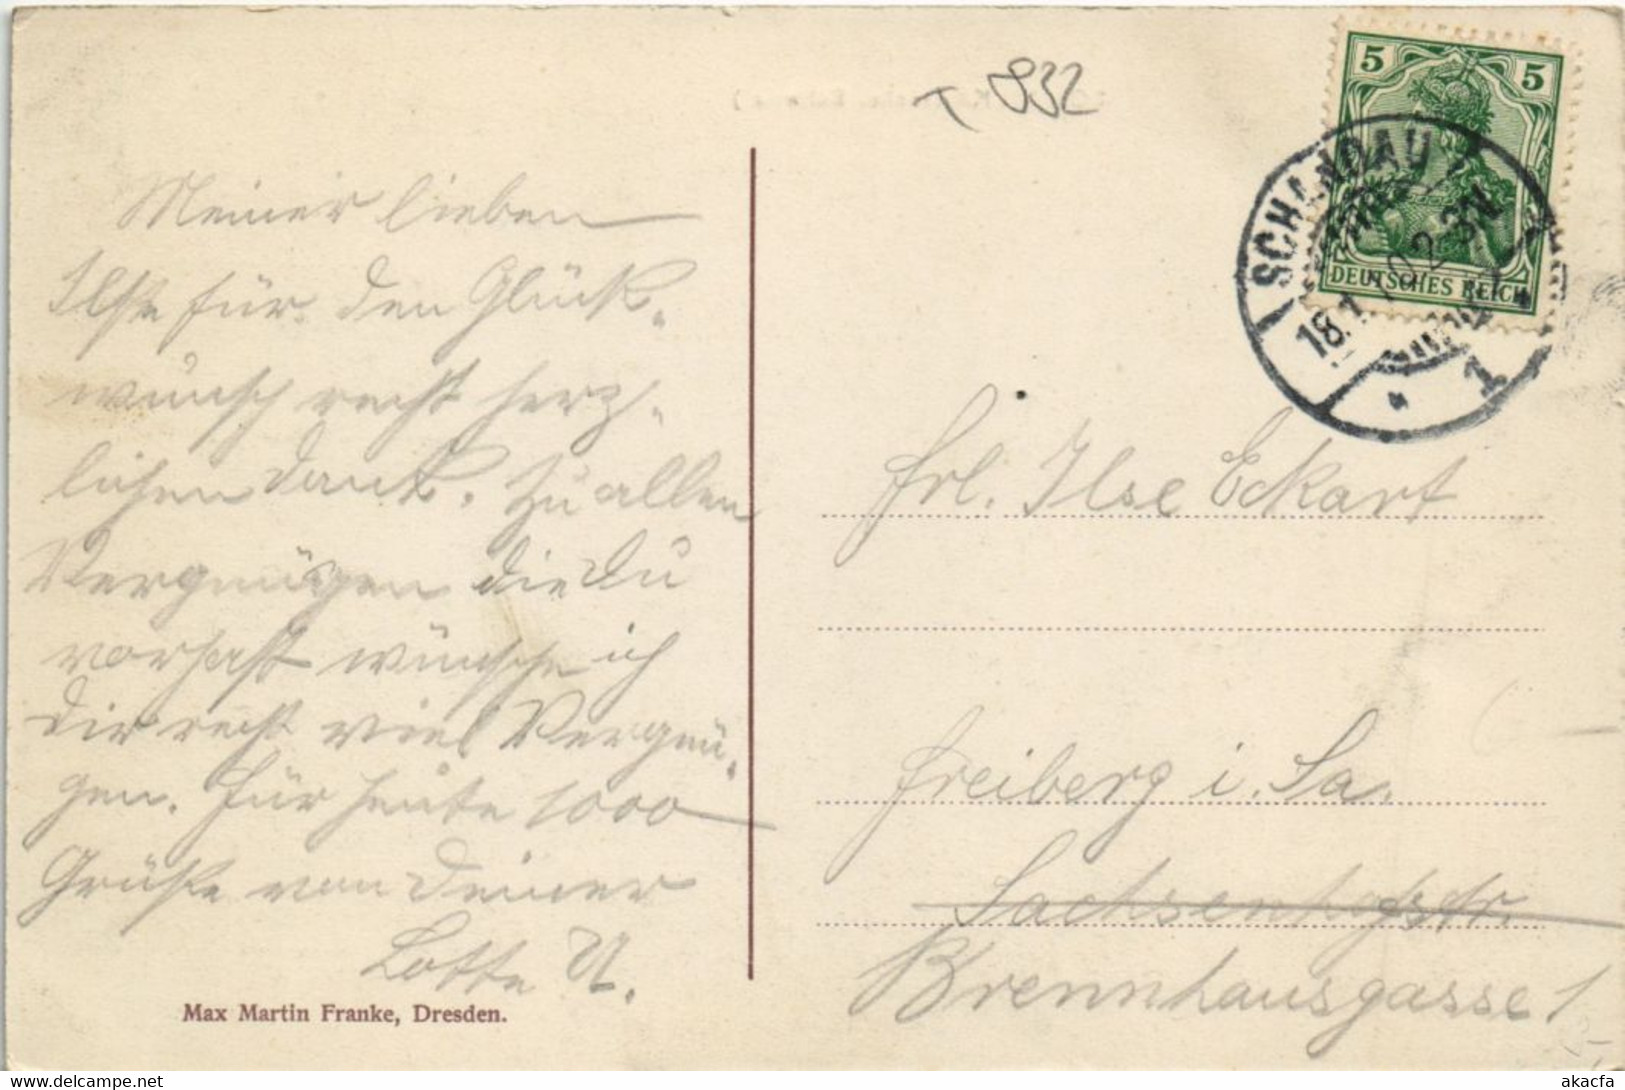 832
Meiner lieben
Ilse für den Glück-
wunsch recht herz-
lichen Dank. Zu allen
Vergnügen die Du
vorhast wünsche ich
Dir recht viel Vergnü-
gen. Für heute 1000
Grüße von Deiner
Lotte U.
Max Martin Franke, Dresden.
5 5
DEUTSCHES REICH
SCHANDAU
18.1.10. 2-3N.
1
Frl. Ilse Eckart
Freiberg i. Sa.
Sachsenhofstr.
Brennhausgasse 1
akacfa